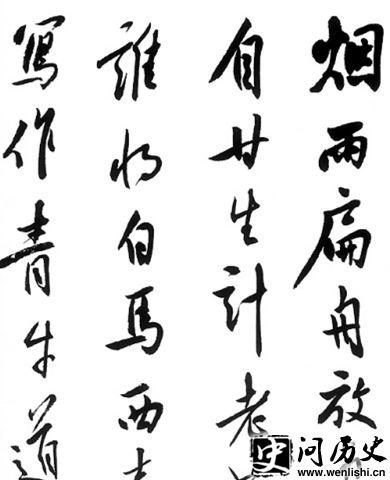 烟雨扁舟放
自甘生計老
誰将白馬西
寫作青牛道
史
问历史
www.wenlishi.cn